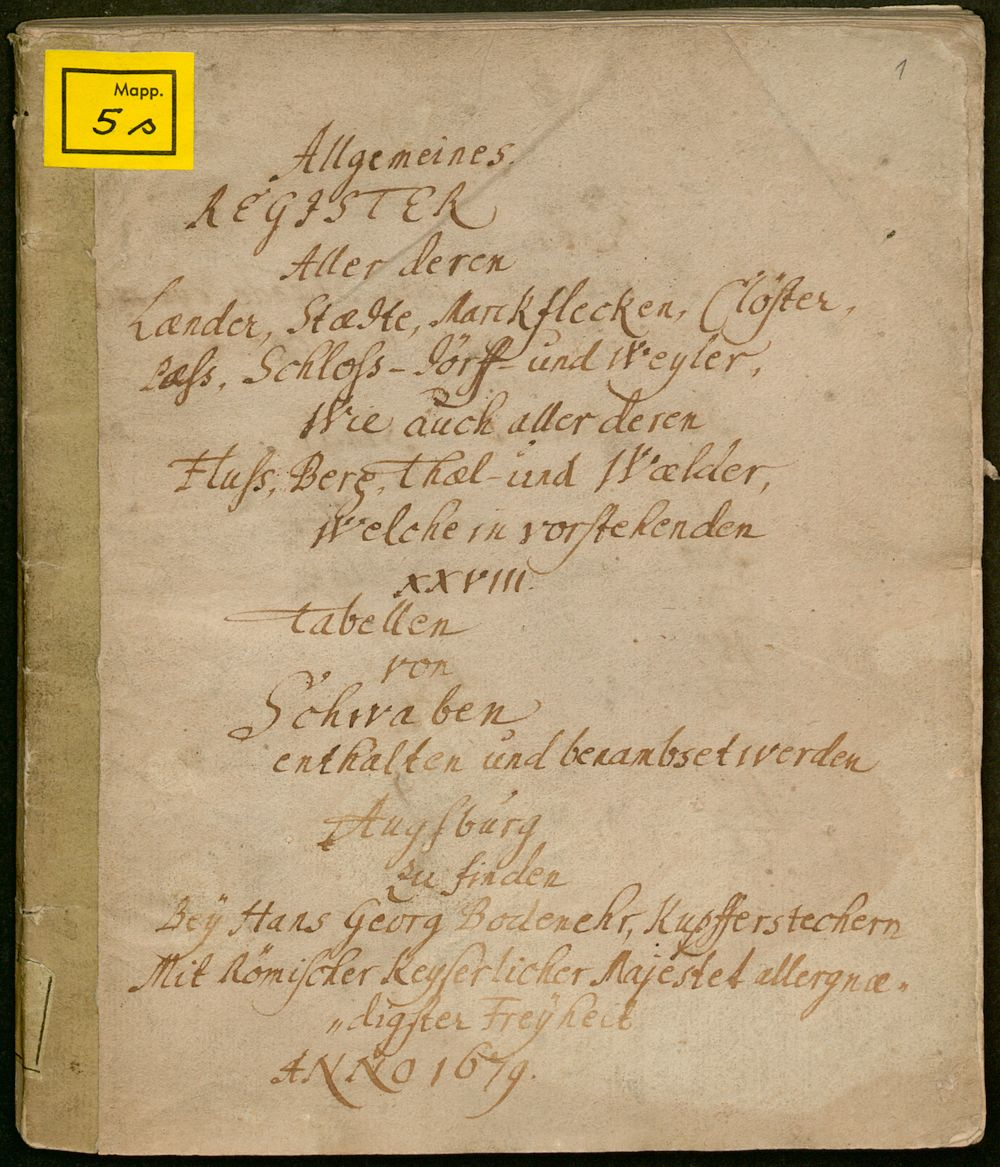 Mapp.
5 s
1
Allgemeines.
REGISTER
Aller deren
Lænder, Stædte, Marckflecken, Clöster,
Pæss, Schloss-Dörff-und Weyler,
Wie auch aller deren
Fluss, Berg, Thæl-und Wælder,
Welche in vorstehenden
XXVIII.
tabellen
von
Schwaben
enthalten und benambset werden
Augsburg
zu finden
Beÿ Hans Georg Bodenehr, Kupfferstechern
Mit Römischer Keyserlicher Majestet allergnæ„
„digster Freÿheit
ANNO 1679.